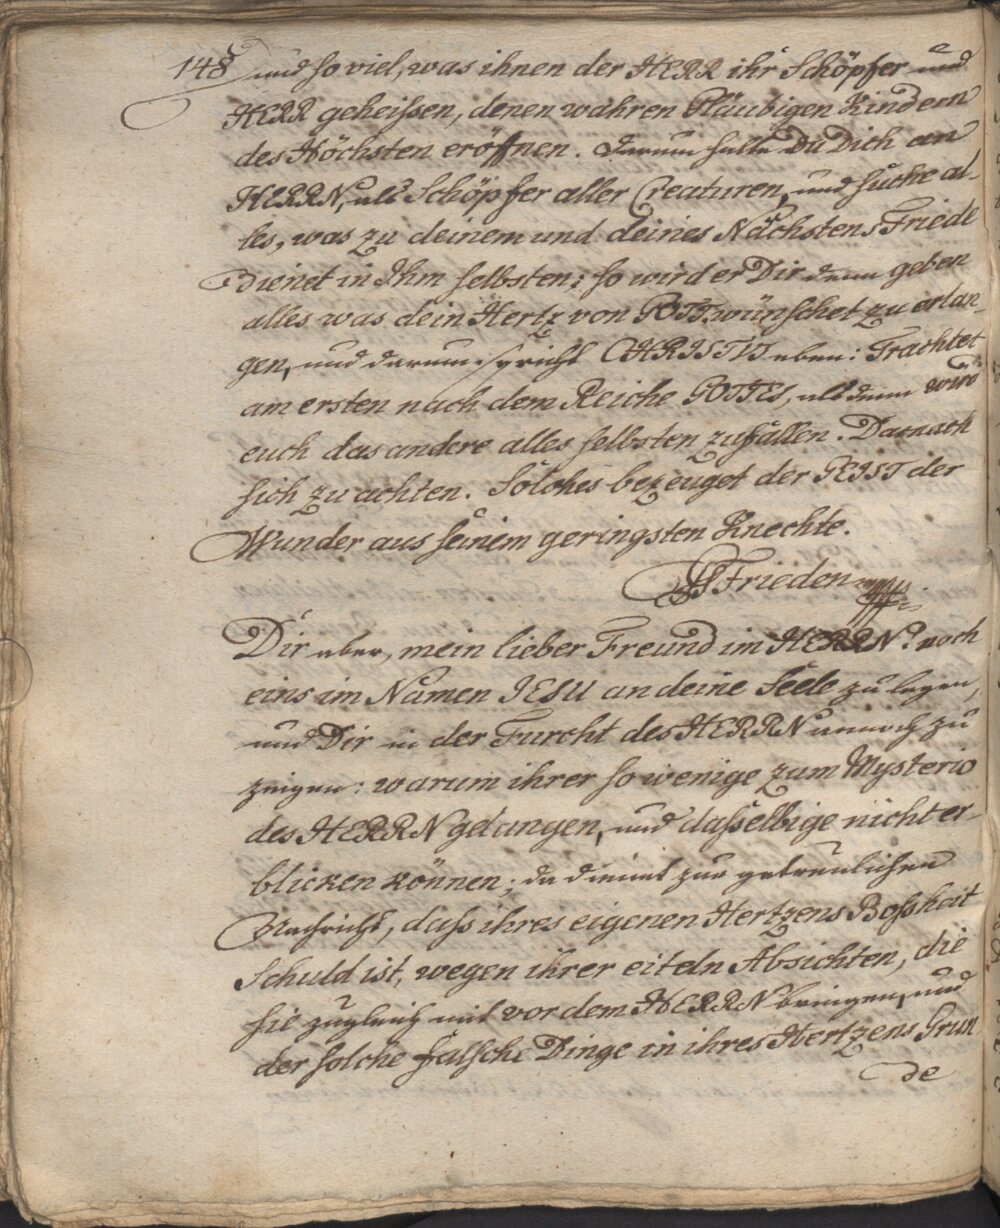 148 und so viel, was ihnen der HERR ihr Schöpfer und
HERR geheißen, denen wahren Gläubigen Kindern
des Höchsten eröffnen. Darum halte Du Dich an
HERRN, als Schöpfer aller Creaturen, und suche al-
les, was zu deinem und deines Nächstens Friede
Dienet in Ihm selbsten; so wird er Dir denn geben
alles was dein Hertz von GOTT wünschet zu erlan-
gen, und darum spricht CHRISTUS eben: Trachtet
am ersten nach dem Reiche GOTTES, als denn wird
euch das andere alles selbsten zufallen. Darnach
sich zu achten. Solches bezeuget der GEIST der
Wunder aus seinem geringsten Knechte.
Frieden
Dir aber, mein lieber Freund im HERRN! noch
eins im Namen JESU an deine Seele zu legen,
und Dir in der Furcht des HERRN annoch zu
zeigen: warum ihrer so wenige zum Mysterio
des HERRN gelangen, und daßelbige nicht er-
blicken können; da dienet zur getreulichen
Nachricht, daß ihres eigenen Hertzens Boßheit
Schuld ist, wegen ihrer eiteln Absichten, die
sie zugleich mit vor dem HERRN bringen, und
der solche falsche Dinge in ihres Hertzens Grun
de